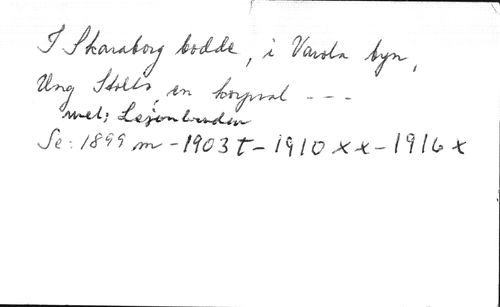 I Skaraborg bodde, i Varola byn,
Ung Stolts, en korpral - - -
mel: Lejonbruden
Se: 1899 m - 1903 t - 1910 x x - 1916 x